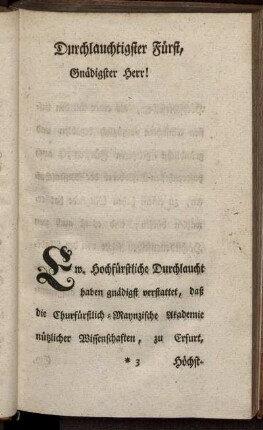 Durchlauchtigster Fürst,
Gnädigster Herr!
Ew. Hochfürstliche Durchlaucht
haben gnädigst verstattet, daß
die Churfürstlich-Maynzische Akademie
nützlicher Wissenschaften, zu Erfurt,
* 3 Höchst-